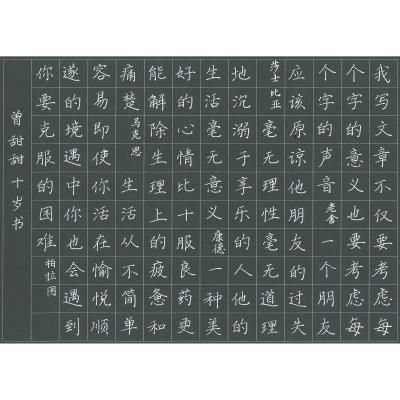 我写文章不仅要考虑每
个字的意义也要考虑每
个字的声音 老舍 一个朋友
应该原谅他朋友的过失
莎士比亚 毫无理性毫无道理
地沉溺于享乐的人他的
生活毫无意义 康德 一种美
好的心情比十服良药更
能解除生理上的疲惫和
痛楚 马克思 生活从不简单
容易即使你活在愉悦顺
遂的境遇中你也会遇到
你要克服的困难 柏拉图
曾甜甜十岁书